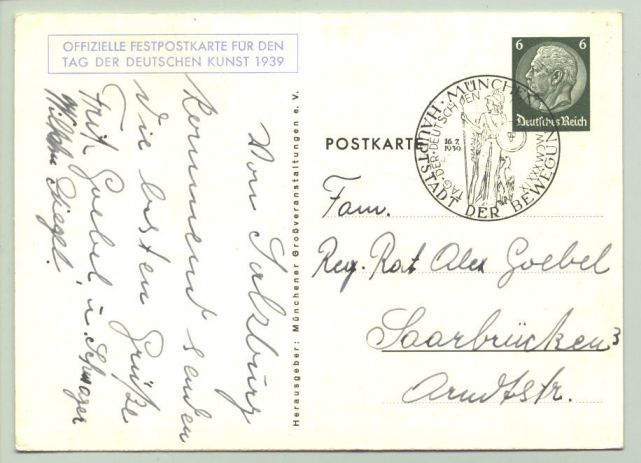 OFFIZIELLE FESTPOSTKARTE FÜR DEN
TAG DER DEUTSCHEN KUNST 1939
Von Salzburg
kommend senden
die besten Grüße
Fritz Goebel u. Schwager
Wilhelm Spiegel!
Herausgeber: Münchener Großveranstaltungen e. V.
POSTKARTE
6 6
Deutsches Reich
MÜNCHEN
HAUPTSTADT DER BEWEGUNG
TAG DER DEUTSCHEN
16.7.
1939
Fam.
Reg. Rat Alex Goebel
Saarbrücken 3
Arndtstr.